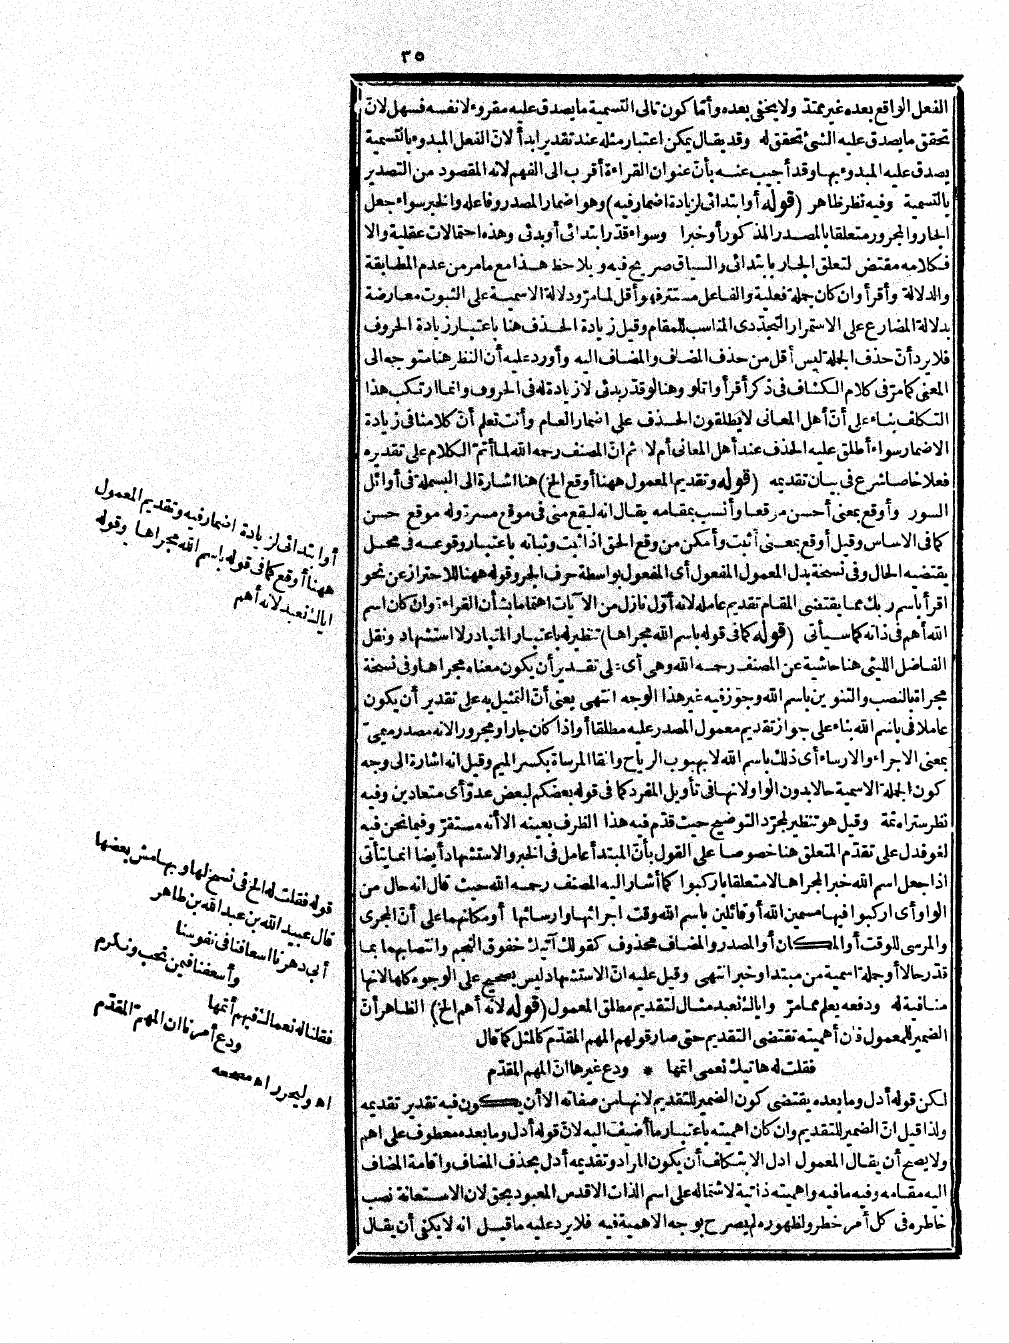 ٣٥
الفعل الواقع بعده غير ممتدّ ولا يخفى بعده وأمّا كون تالى التسمية ما يصدق عليه مقروء لا نفسه فسهل لانّ
تحقق ما يصدق عليه الشئ تحقق له وقد يقال يمكن اعتبار مثله عند تقدير ابدأ لانّ الفعل المبدوء بالتسمية
يصدق عليه المبدوء بها وقد أجيب عنه بأنّ عنوان القراءة أقرب الى الفهم لانه المقصود من التصدير
بالتسمية وفيه نظر ظاهر (قوله أو ابتدائى لزيادة اضمار فيه) وهو اضمار المصدر وفاعله والخبر سواء جعل
الجار والمجرور متعلقا بالمصدر المذكور أو خبرا وسواء قدّر ابتدائى أو بدئى وهذه احتمالات عقلية والا
فكلامه مقتض لتعلق الجار بابتدائى والسياق صريح فيه ويلاحظ هذا مع ما مر من عدم المطابقة
والدلالة وأقرأ وان كان جملة فعلية والفاعل مستتر فهو أقل لما مرّ ودلالة الاسمية على الثبوت معارضة
بدلالة المضارع على الاستمرار التجدّدى المناسب للمقام وقيل زيادة الحذف هنا باعتبار زيادة الحروف
فلا يرد أنّ حذف الجملة ليس أقل من حذف المضاف والمضاف اليه وأورد عليه أن النظر هنا متوجه الى
المعنى كما مرّ فى كلام الكشاف فى ذكر أقرأ واتلو وهنا لو قدر بدئى لا زيادة له فى الحروف وانما ارتكب هذا
التكلف بناء على أنّ أهل المعانى لا يطلقون الحذف على اضمار العام وأنت تعلم أنّ كلامنا فى زيادة
الاضمار سواء أطلق عليه الحذف عند أهل المعانى أم لا ثم انّ المصنف رحمه الله لما أتمّ الكلام على تقديره
فعلا خاصا شرع فى بيان تقديمه (قوله وتقديم المعمول ههنا أوقع الخ) هنا اشارة الى البسملة فى أوائل
السور وأوقع بمعنى أحسن موقعا وأنسب بمقامه يقال انه ليقع منى فى موقع مسرّة وله موقع حسن
كما فى الاساس وقيل أوقع بمعنى أثبت وأمكن من وقع الحق اذا ثبت وثباته باعتبار وقوعه فى محل
يقتضيه الحال وفى نسخة بدل المعمول المفعول أى المفعول بواسطة حرف الجر وقوله ههنا للاحتراز عن نحو
اقرأ باسم ربك مما يقتضى المقام تقديم عامله لانه أول نازل من الآيات اهتماما بشأن القراءة وان كان اسم
الله أهم فى ذاته كما سيأتى (قوله كما فى قوله باسم الله مجراها) تنظير له باعتبار المتبادر لا استشهاد ونقل
الفاضل الليثى هنا حاشية عن المصنف رحمه الله وهى أى على تقدير أن يكون معناه مجراها وفى نسخة
مجراة بالنصب والتنوين باسم الله وجوّز فيه غير هذا الوجه انتهى يعنى أنّ التمثيل به على تقدير أن يكون
عاملا فى باسم الله بناء على جواز تقديم معمول المصدر عليه مطلقا أو اذا كان جارا ومجرورا لانه مصدر ميمىّ
بمعنى الاجراء والارساء أى ذلك باسم الله لا بهبوب الرياح والقا المرساة بكسر الميم وقيل انه اشارة الى وجه
كون الجملة الاسمية حالا بدون الواو لانها فى تأويل المفرد كما فى قوله بعضكم لبعض عدوّ أى متعادين وفيه
نظر ستراه ثمة وقيل هو تنظير لمجرّد التوضيح حيث قدّم فيه هذا الظرف بعينه الا أنه مستقرّ وفيما نحن فيه
لغو فدل على تقدّم المتعلق هنا خصوصا على القول بأنّ المبتدأ عامل فى الخبر والاستشهاد أيضا انما يتأتى
اذا جعل اسم الله خبرا لمجراها لا متعلقا باركبوا كما أشار اليه المصنف رحمه الله حيث قال انه حال من
الواو أى اركبوا فيها مسمين الله أو قائلين باسم الله وقت اجرائها وارسائها أو مكانهما على أنّ المجرى
والمرسى للوقت أو المكان أو المصدر والمضاف محذوف كقولك آتيك خفوق النجم وانتصابهما بما
قدّر حالا أو جملة اسمية من مبتدا وخبر انتهى وقيل عليه انّ الاستشهاد ليس بصحيح على الوجوه كلها لانها
منافية له ودفعه يعلم مما مرّ واياك نعبد مثال لتقديم مطلق المعمول (قوله لانه أهم الخ) الظاهر أنّ
الضمير للمعمول فان أهميته تقتضى التقديم حتى صار قولهم المهم المقدّم كالمثل كما قال
فقلت له هاتيك نعمى اتمها * ودع غيرها ان المهم المقدّم
لكن قوله أدل وما بعده يقتضى كون الضمير للتقديم لانها من صفاته الا أن يكون فيه تقدير تقديمه
ولذا قيل انّ الضمير للتقديم وان كان اهميته باعتبار ما أضيف اليه لانّ قوله أدل وما بعده معطوف على اهم
ولا يصح أن يقال المعمول ادل الا بتكلف أن يكون المراد وتقديمه أدل بحذف المضاف واقامة المضاف
اليه مقامه وفيه ما فيه واهميته ذاتية لاشتماله على اسم الذات الاقدس المعبود بحق لان الاستعانة نصب
خاطره فى كل أمر خطر ولظهوره لم يصرح بوجه الاهمية فيه فلا يرد عليه ما قيل انه لا يكفى أن يقال
أو ابتدائى لزيادة اضمار فيه وتقديم المعمول
ههنا أوقع كما فى قوله باسم الله مجراها وقوله
اياك نعبد لانه أهم
قوله فقلت له الخ فى نسخ لها وبهامش بعضها
قال عبيد الله بن عبد الله بن طاهر
أبى دهرنا اسعافنا فى نفوسنا
وأسعفنا فيمن نحب ونكرم
فقلنا له نعماك فيهم أتمها
ودع أمرنا ان المهم المقدّم
اه وليحرر اه مصححه